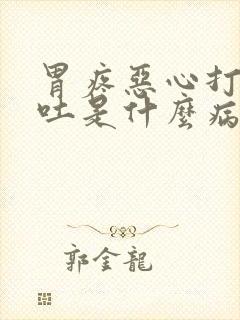 胃疼惡心打
吐是什麼病
郭金龍